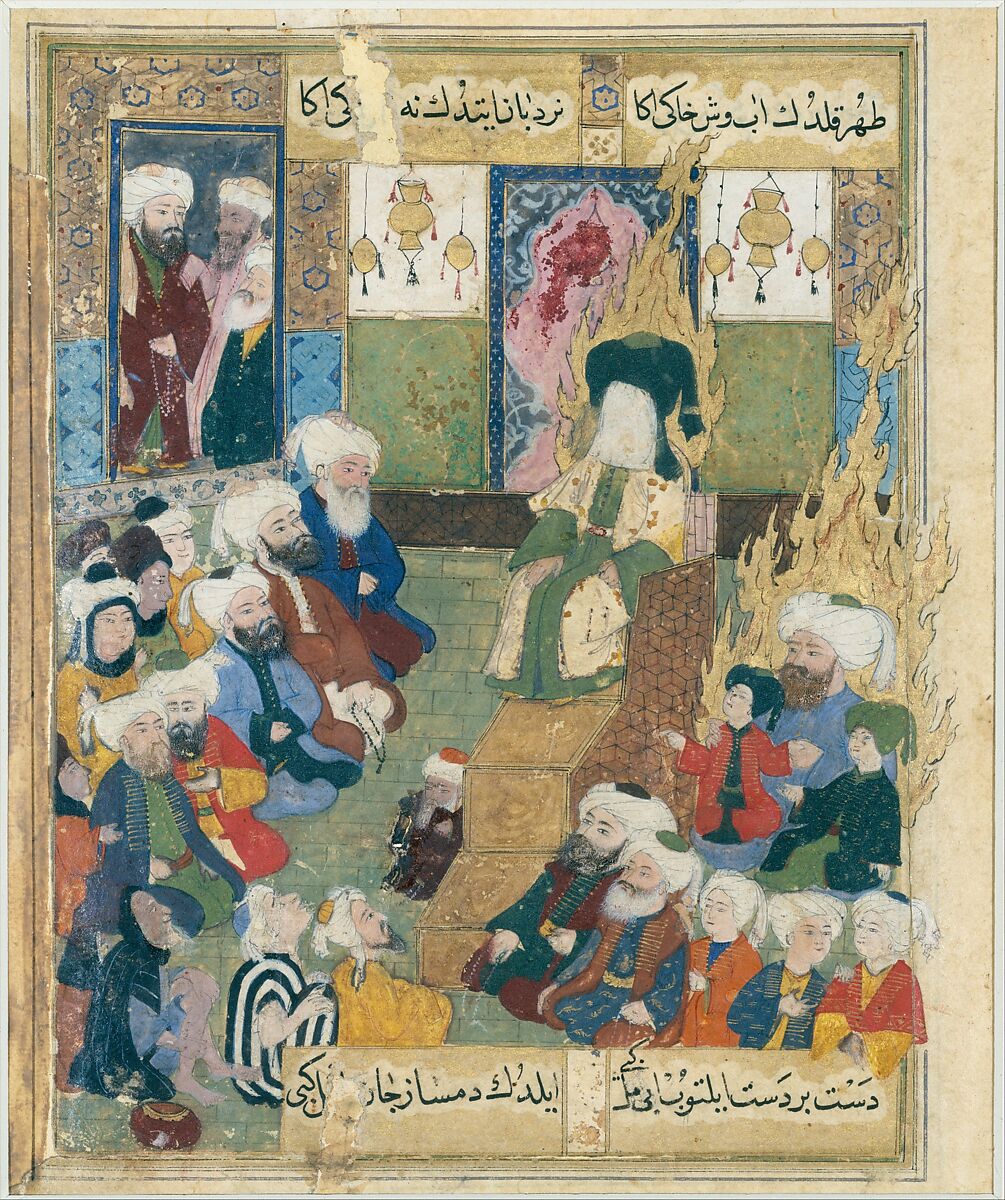 طهر قلدك اب وش خاكى اكا نردبان ايتدك نه كى اكا
دست بر دست ايلتوب انى مل كبى ايلدك دمساز جان كبى